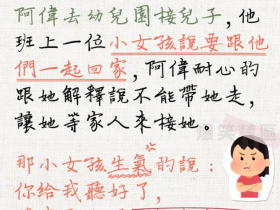 阿偉去幼兒園接兒子，他
班上一位小女孩說要跟他
們一起回家，阿偉耐心的
跟她解釋說不能帶她走，
讓她等家人來接她。
那小女孩生氣的說：
你給我聽好了，